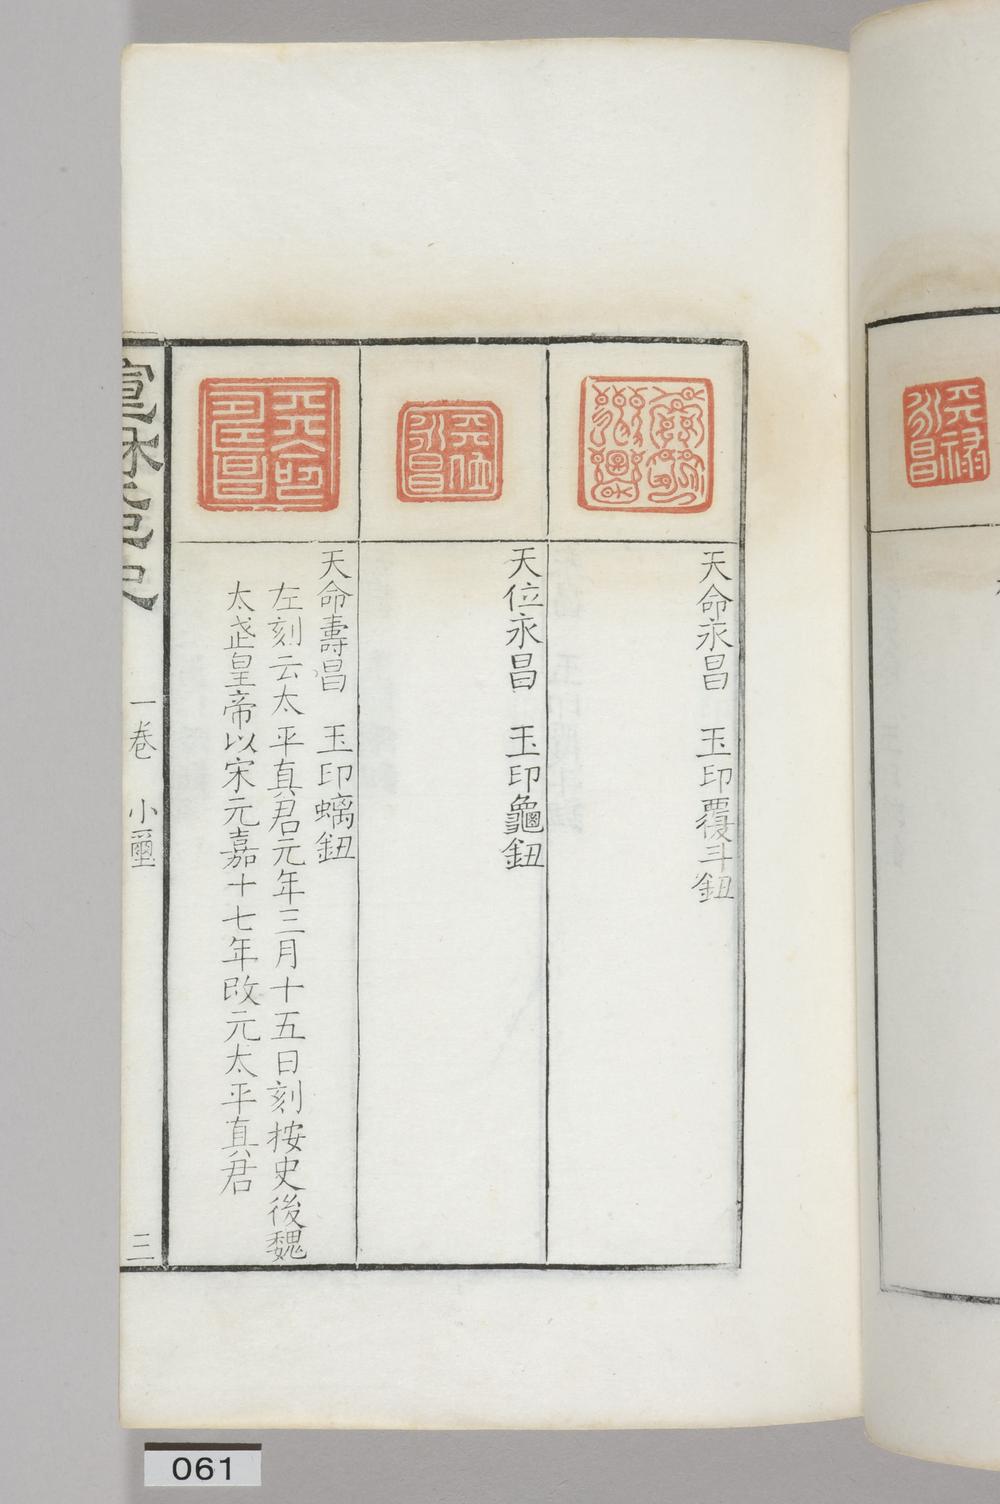 天命永昌　玉印覆斗鈕
天位永昌　玉印龜鈕
天命壽昌　玉印螭鈕
左刻云太平真君元年三月十五日刻按史後魏
太武皇帝以宋元嘉十七年改元太平真君
宣和之史
一卷　小璽
三
天祿永昌
061